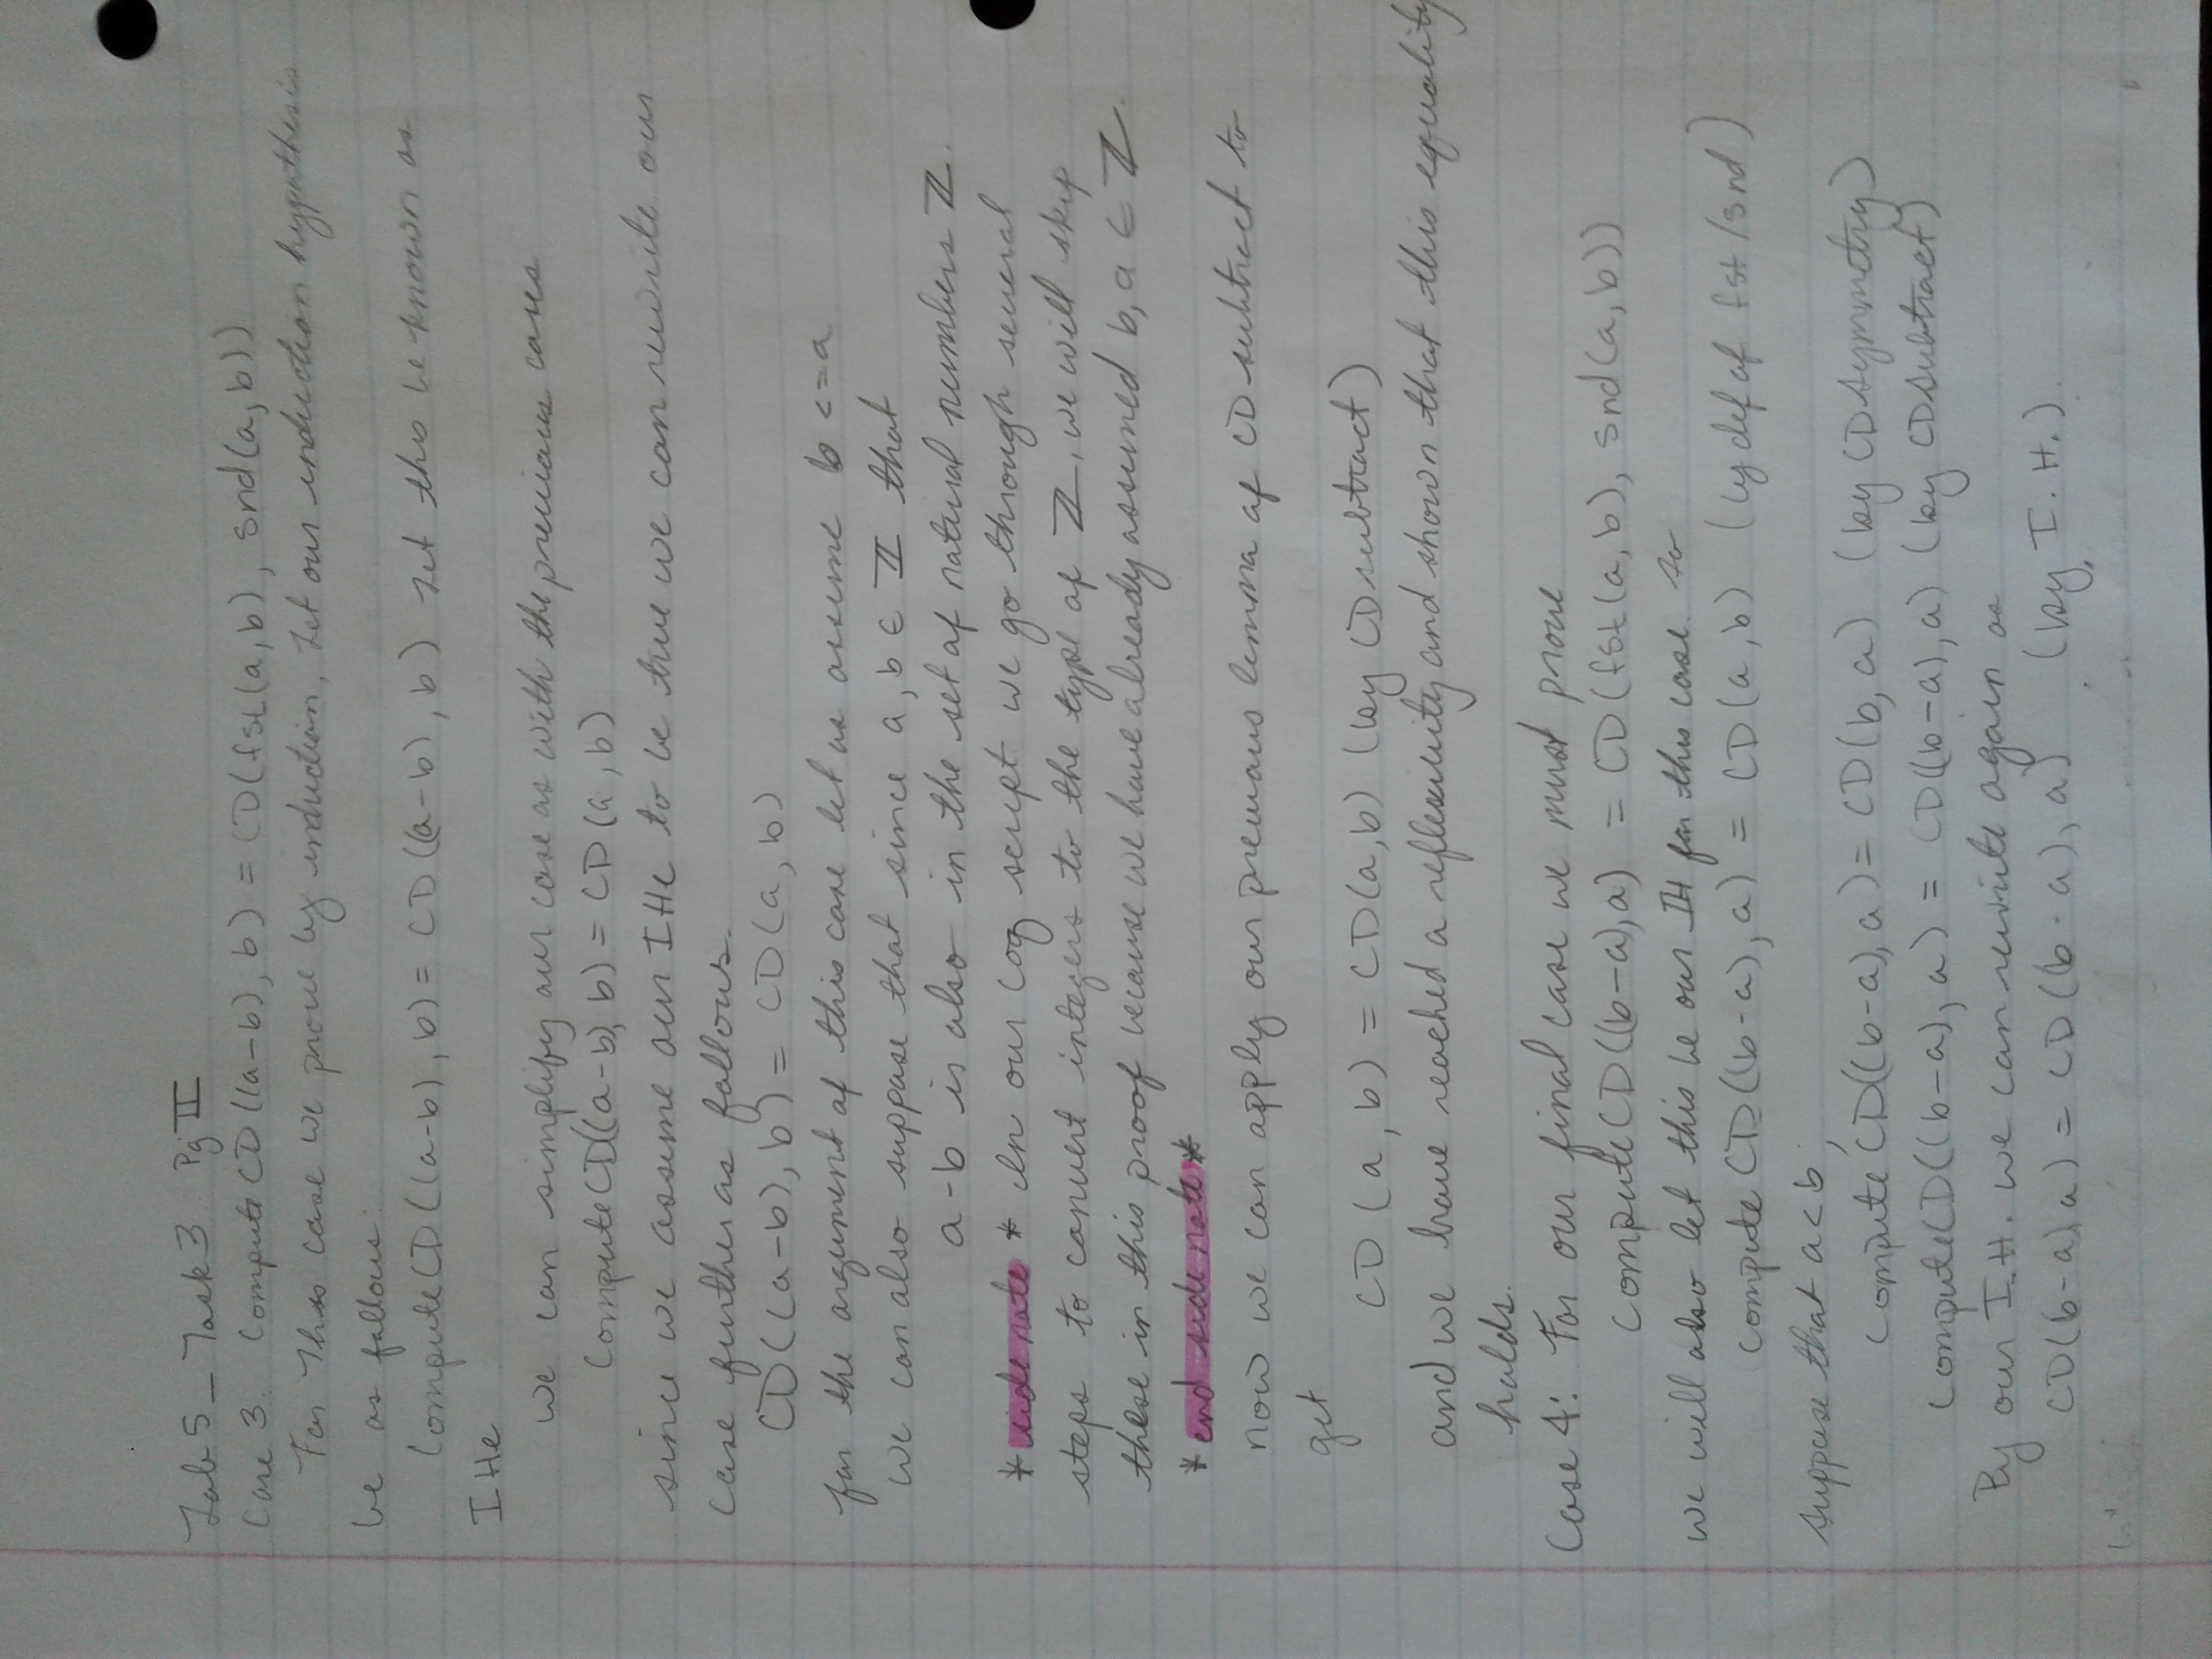 Lab 5 _ Task 3 Pg II
Case 3. ComputeCD((a-b), b) = CD(fst(a,b), snd(a,b))
For this case we prove by induction, Let our induction hypothesis
be as follows:
ComputeCD((a-b), b) = CD((a-b), b) Let this be known as
IHe
we can simplify our case as with the previous cases
ComputeCD((a-b), b) = CD(a, b)
since we assume our IHe to be true we can rewrite our
case further as follows.
CD((a-b), b) = CD(a, b)
for the argument of this case let us assume b <= a
we can also suppose that since a, b ∈ ℤ that
a-b is also in the set of natural numbers ℤ.
* side note * In our Coq script we go through several
steps to convert integers to the type of ℤ, we will skip
these in this proof because we have already assumed b, a ∈ ℤ.
* end side note *
now we can apply our previous lemma of CD subtract to
get
CD(a, b) = CD(a,b) (by CDsubtract)
and we have reached a reflexivity and shown that this equality
holds.
Case 4: For our final case we must prove
ComputeCD((b-a),a) = CD(fst(a,b), snd(a,b))
we will also let this be our IH for this case. so
compute CD((b-a), a) = CD(a,b) (by def of fst/snd)
suppose that a<b,
compute CD((b-a),a) = CD(b,a) (by CDsymmetry)
ComputeCD((b-a), a) = CD((b-a),a) (by CDSubtract)
By our I.H. we can rewrite again as
CD(b-a),a) = CD((b-a), a) (by I.H.).